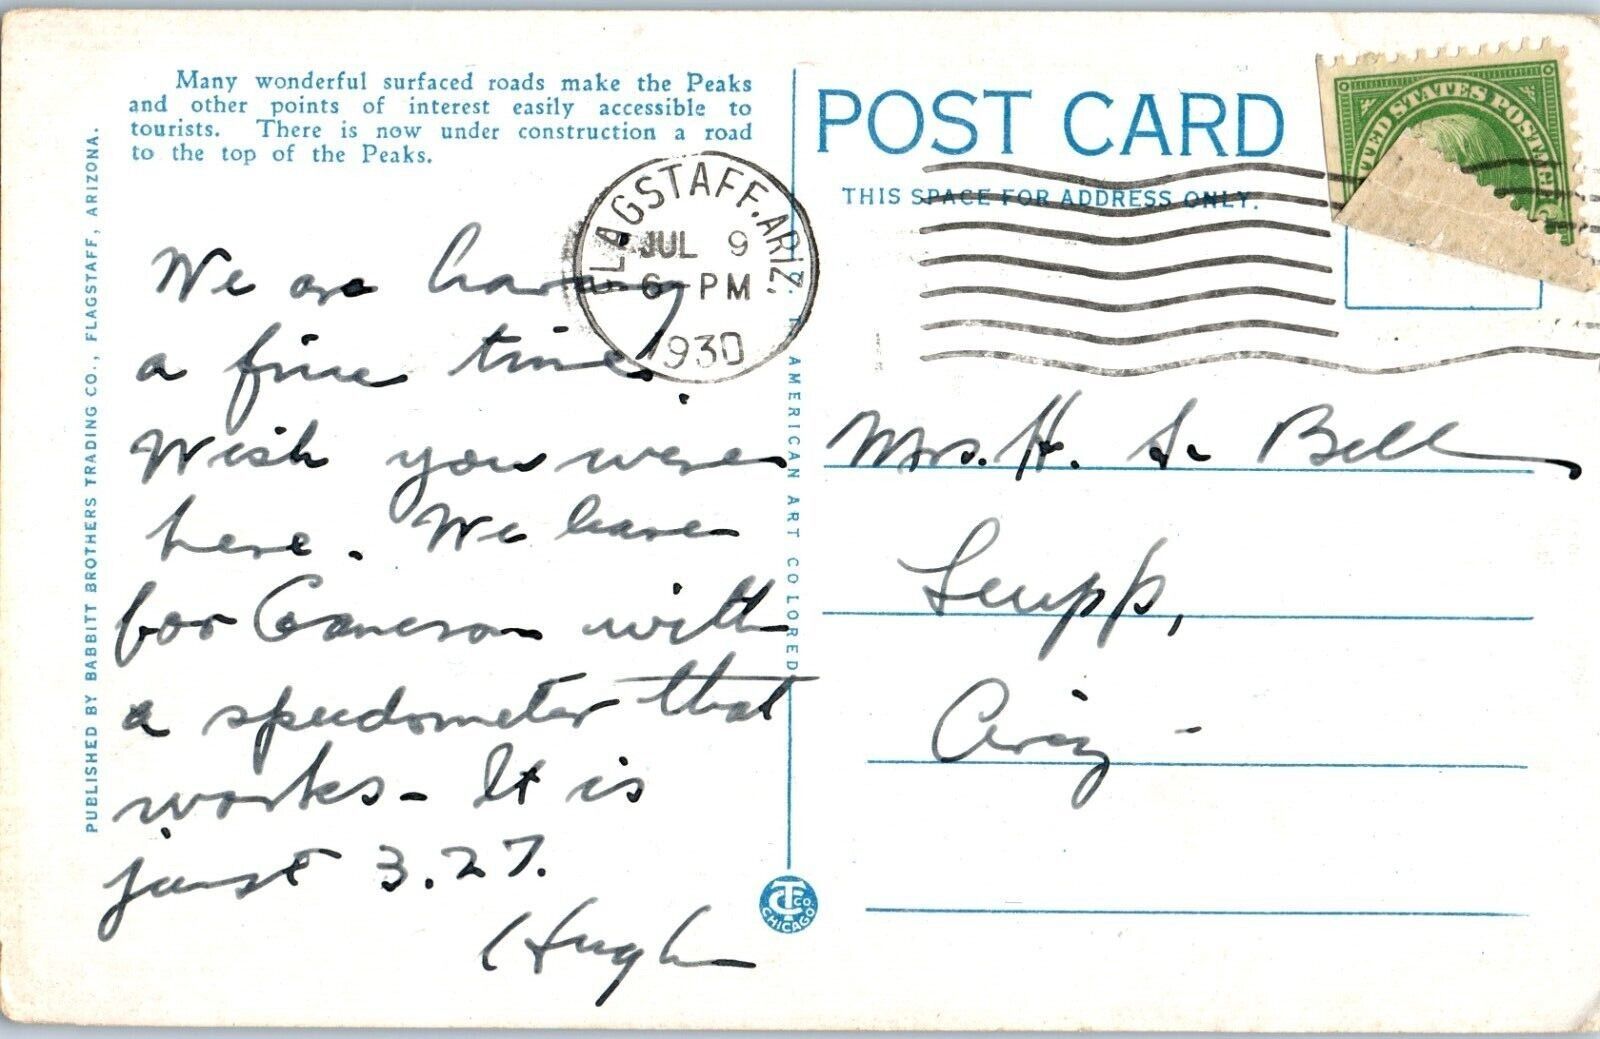 Many wonderful surfaced roads make the Peaks
and other points of interest easily accessible to
tourists. There is now under construction a road
to the top of the Peaks.
PUBLISHED BY BABBITT BROTHERS TRADING CO., FLAGSTAFF, ARIZONA.
FLAGSTAFF, ARIZ.
JUL 9
6 - PM
1930
We are having
a fine time.
Wish you were
here. We leave
for Cameron with
a speedometer that
works - It is
just 3.27.
Hugh
AMERICAN ART COLORED
C.T. CO.
CHICAGO
POST CARD
THIS SPACE FOR ADDRESS ONLY.
UNITED STATES POSTAGE
Mrs. H. S. Bell
Leupp,
Ariz -